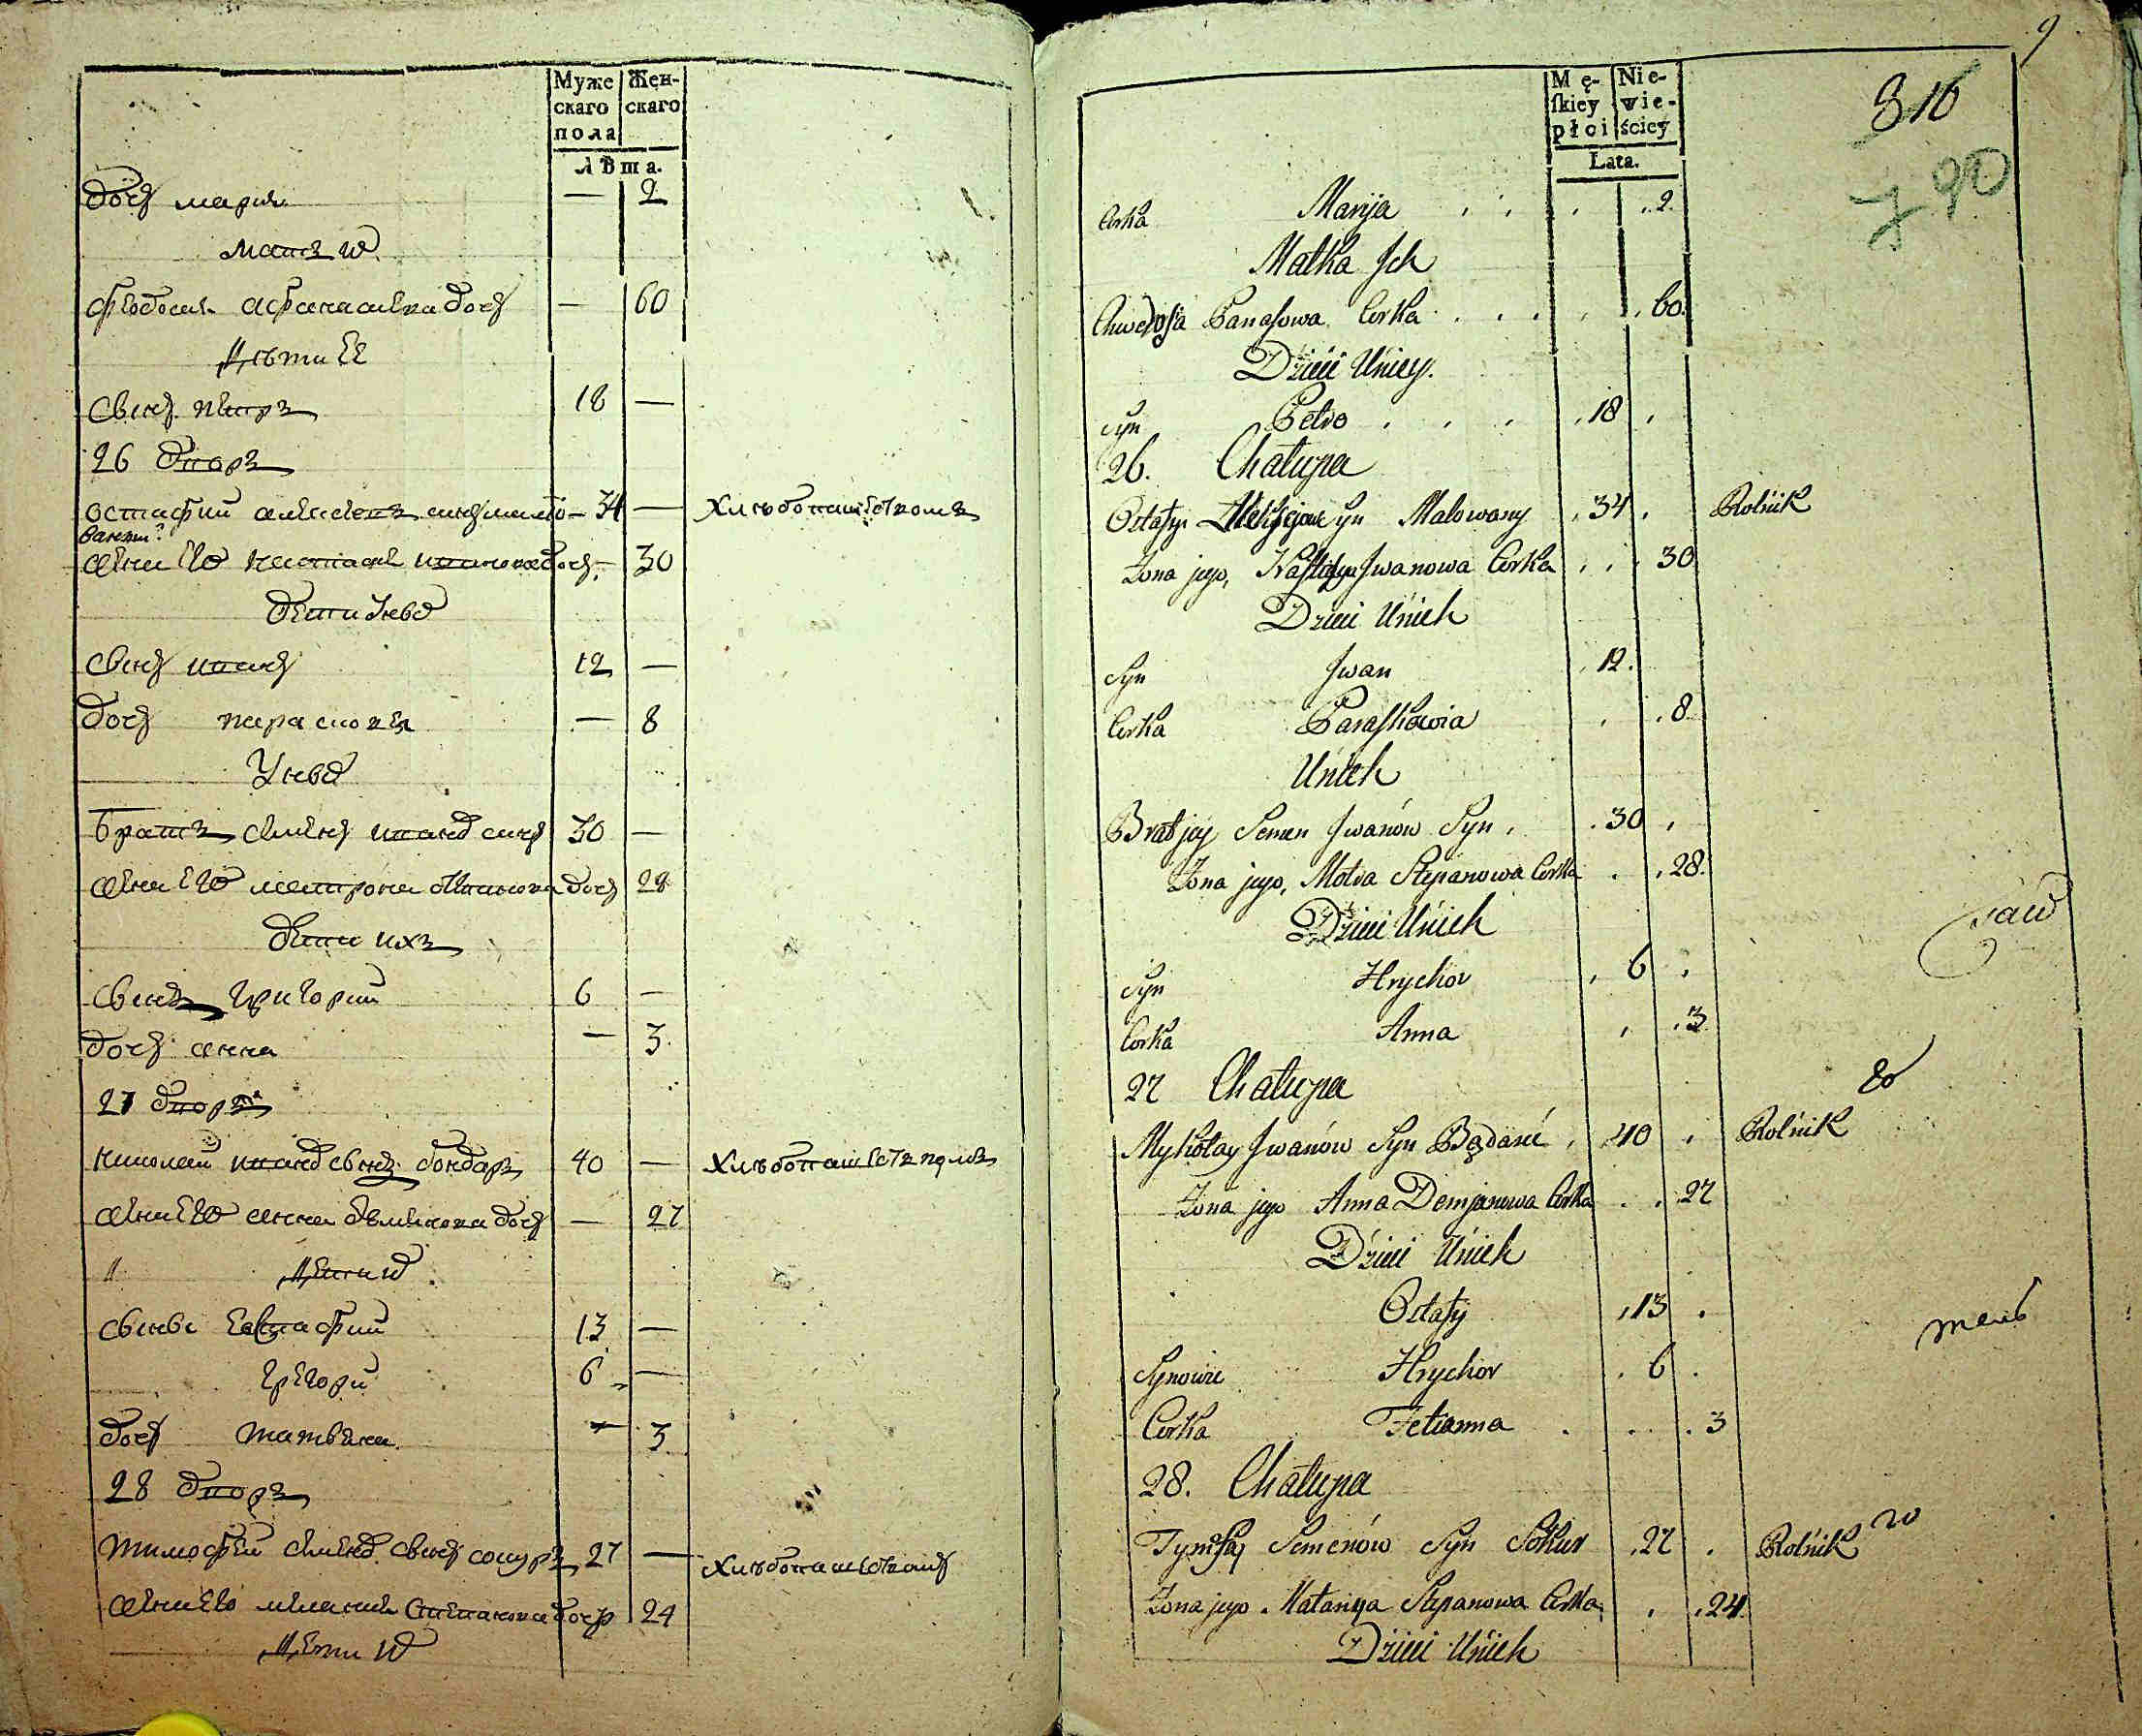 Муже Жен-
скаго скаго
пола
Лѣта.
дочь мария — 2
матъ их
феодосия афанасиева дочь — 60
Дѣти ее
сынъ петръ 18 —
26 дворъ
остафий алексеевъ сынъ мало- 34 — Хлѣбопашествомъ
ваный
жена его настасия иванова дочь — 30
дети У нихъ
сынъ иванъ 12 —
дочь парасковея — 8
У нихъ
братъ семенъ ивановъ сынъ 30 —
жена его матрона степанова дочь 28
дети ихъ
сынъ григорий 6 —
дочь анна — 3
27 дворъ
николай ивановъ сынъ бондаръ 40 — Хлѣбопашествомъ
жена его анна демянова дочь — 27
" Дети их
сынъве Евстафий 13 —
григори 6 —
дочь татьяна — 3
28 дворъ
тимофей семеновъ сынъ сокуръ 27 — Хлѣбопашествомъ
жена его мелания степанова дочь 24
Дети их
9
Mę- Nie-
ſkiey wie-
płci ściey
Lata.
816
790
Corka Marija 2
Matka Ich
Chwedosia Panasowa Corka 60
Dzieci Uniey.
Syn Petro 18
26. Chałupa
Ostafiy Alekſejow Syn Malowany 34 Rolnik
Żona jego, Nastasya Iwanowa Corka 30
Dzieci Unich
Syn Iwan 12
Corka Paraſkowia 8
Unich
Brat jey Semen Iwanów Syn 30
Żona jego, Motra Stepanowa Corka 28
Dzieci Unich
Syn Hrychor 6
Corka Anna 3
27 Chałupa
Mykołay Iwanów Syn Bądarz 40 Rolnik
Żona jego Anna Demjanowa Corka 27
Dzieci Unich
Ostafiy 13
Synowie Hrychor 6
Corka Tetianna 3
28. Chałupa
Tymofiy Semenów Syn Sokur 27 Rolnik
Żona jego Małaniya Stepanowa Corka 24
Dzieci Unich